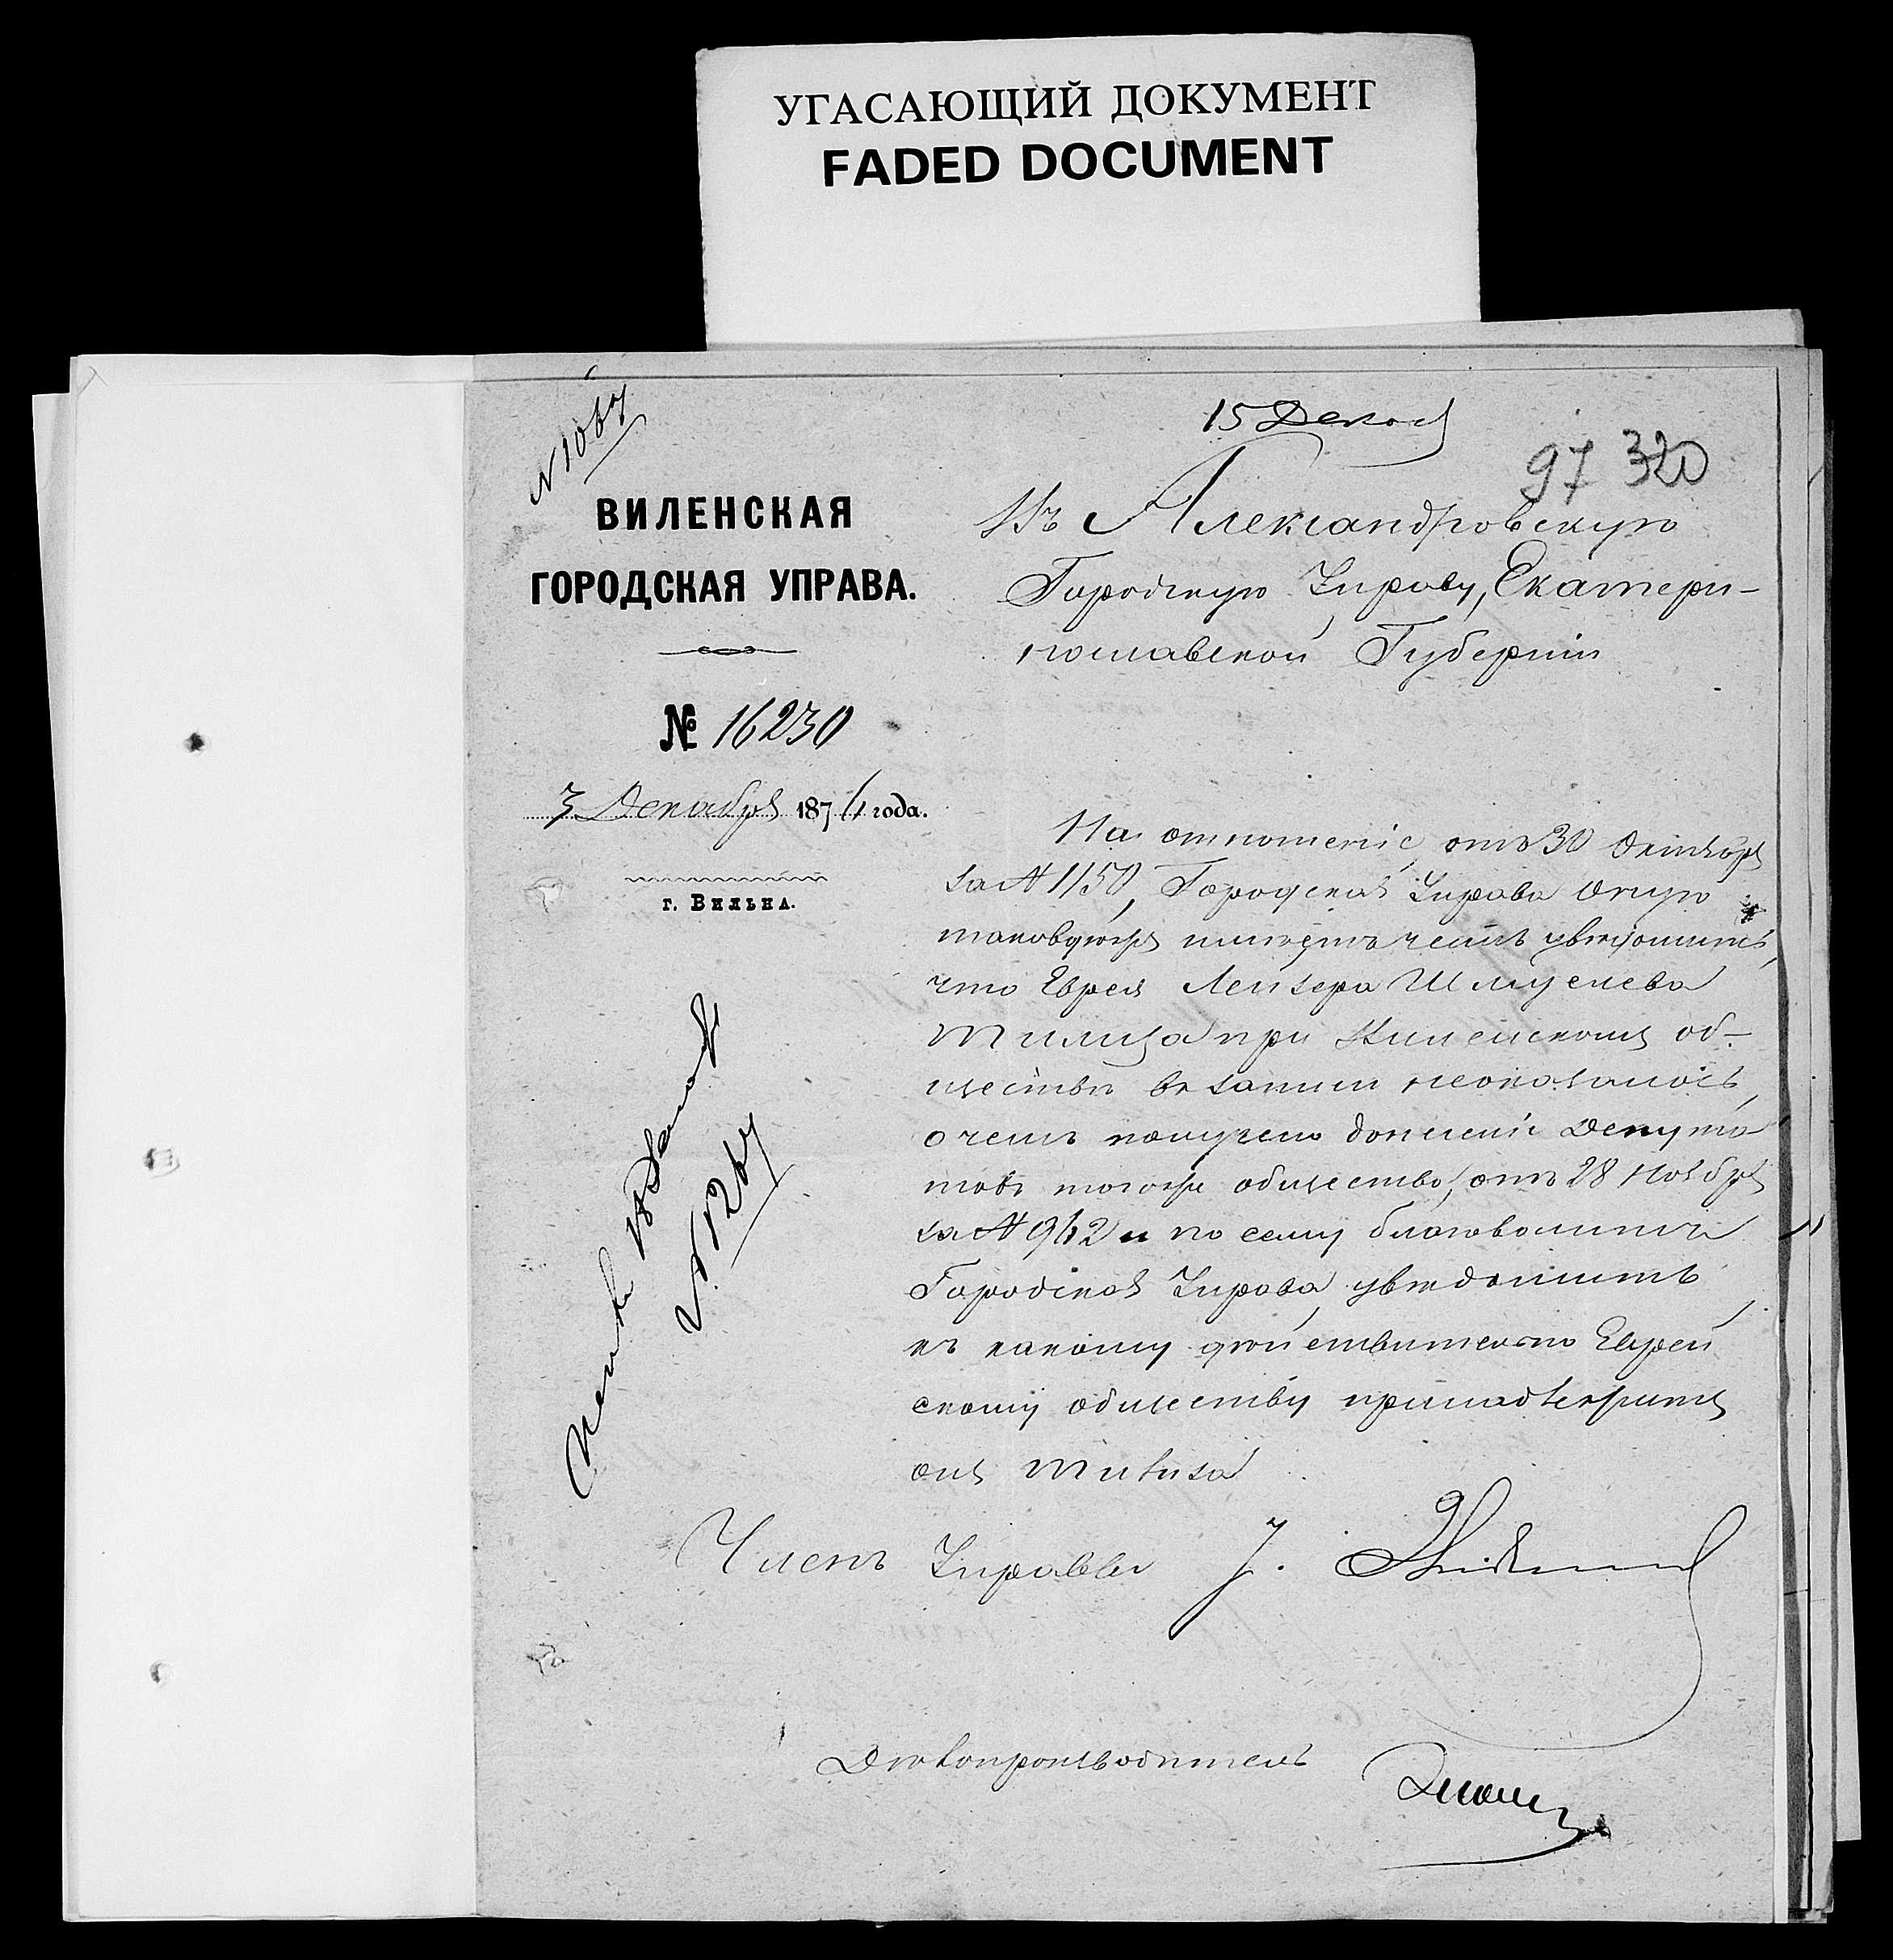 УГАСАЮЩИЙ ДОКУМЕНТ
FADED DOCUMENT
15 Декаб
97 320
ВИЛЕНСКАЯ
ГОРОДСКАЯ УПРАВА.
№ 16230
3 Декабря 1874 года.
г. Вильна.
Въ Александровскую
Городскую Управу, Екатери-
нославской Губерніи
На отношеніе отъ 30 Октября
за № 1150, Городская Управа
честь увѣдомить,
что Еврея Лейзера Шмуелева
при Виленскомъ об-
ществѣ въ записи неоказалось,
о чемъ получено донесеніе Депута
товъ тогоже общества, отъ 28 Ноября
за № 942 и по сему благоволитъ
Городская Управа увѣдомить
къ какому дѣйствительно Еврей
скому обществу принадлежитъ
онъ
Членъ Управы
Дѣлопроизводитель